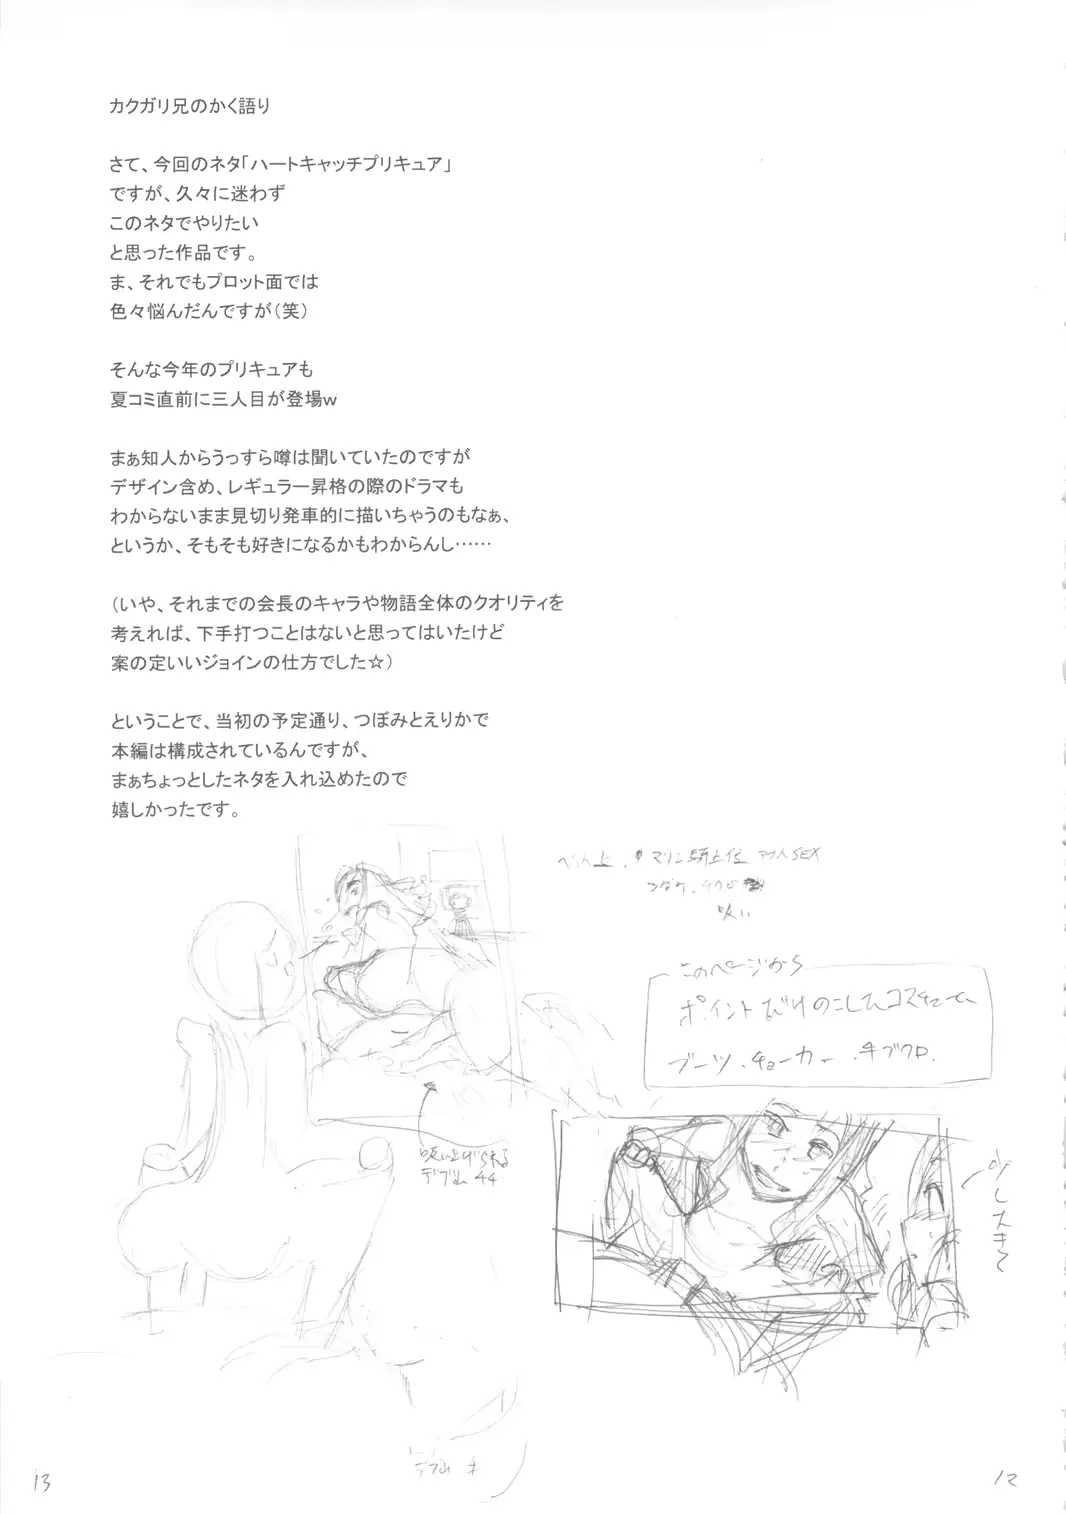 カクガリ兄のかく語り
さて、今回のネタ「ハートキャッチプリキュア」
ですが、久々に迷わず
このネタでやりたい
と思った作品です。
ま、それでもプロット面では
色々悩んだんですが(笑)
そんな今年のプリキュアも
夏コミ直前に三人目が登場w
まぁ知人からうっすら噂は聞いていたのですが
デザイン含め、レギュラー昇格の際のドラマも
わからないまま見切り発車的に描いちゃうのもなぁ、
というか、そもそも好きになるかもわからんし……
(いや、それまでの会長のキャラや物語全体のクオリティを
考えれば、下手打つことはないと思ってはいたけど
案の定いいジョインの仕方でした☆)
ということで、当初の予定通り、つぼみとえりかで
本編は構成されているんですが、
まぁちょっとしたネタを入れ込めたので
嬉しかったです。
13
12